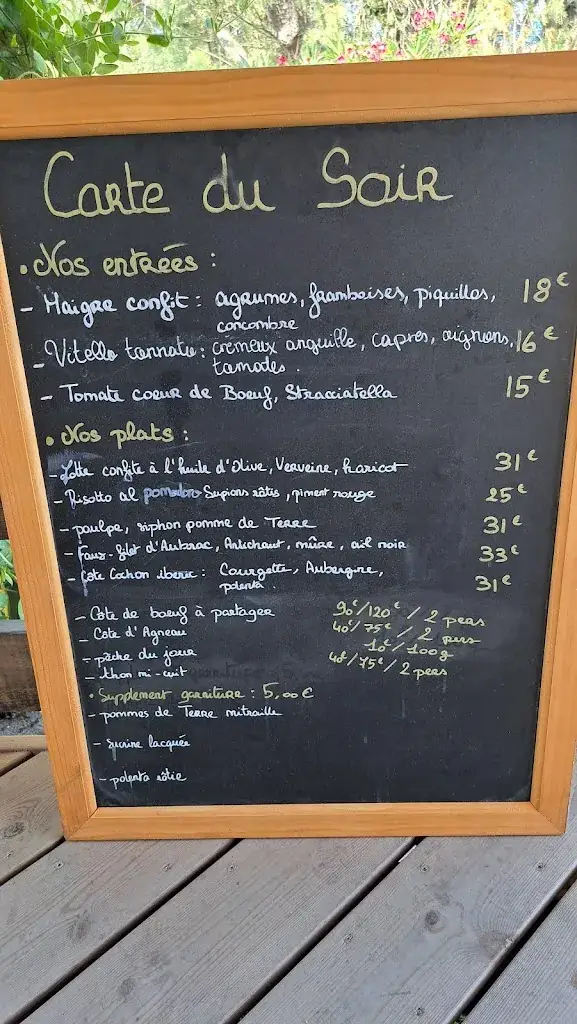 Carte du Soir
• Nos entrées :
- Maigre confit : agrumes, framboises, piquillos, 18€
concombre
- Vitello tonnato : crémeux anguille, capres, oignons, 16€
tomates .
- Tomate coeur de Boeuf, Straciatella 15€
• Nos plats :
- Lotte confite à l'huile d'Olive, Verveine, haricot 31€
- Risotto al pomodoro Supions rôtis, piment rouge 25€
- poulpe, siphon pomme de Terre 31€
- Faux-filet d'Aubrac, Artichaut, mûre, ail noir 33€
- Côte Cochon iberic : Courgette, Aubergine, 31€
polenta.
- Côte de boeuf à partager 90€/120€ / 2 pers
- Côte d'Agneau 40€/75€ / 2 pers
- pêche du jour 10€/100g
- thon mi-cuit 40€/75€ / 2 pers
• Supplement garniture : 5,00€
- pommes de Terre mitraille
- sucrine laquée
- polenta rôtie